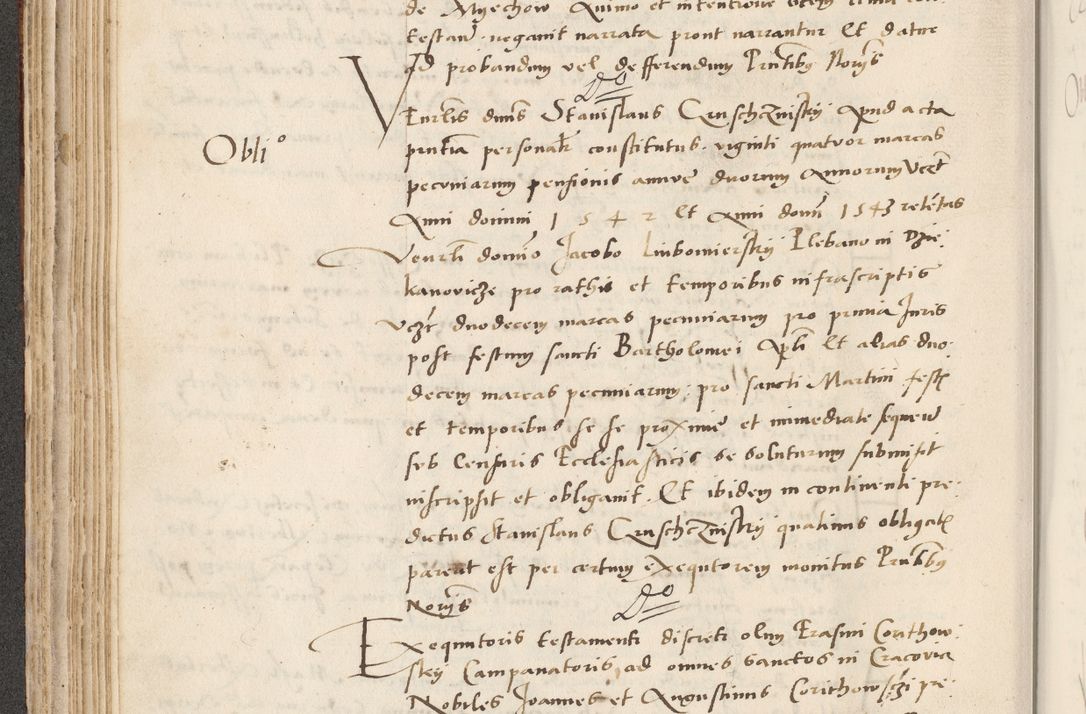 de Myechow Animo et intentione
testan negauit narrata prout narrantur Et datur
ad probandum vel defferendum Pntibus Norijs
Do
Obli o
VEnrlis dnus Stanislaus Cruschczinskij Apud acta
pntia personalr constitutus viginti quatuor marcas
pecuniarum pensionis annue duorum Annorum Vczt
Anni domini 1542 Et Anni domi 1543 retetas
Venrli domino Jacobo Lubomierskij Plebano in Dzie
kanovicze pro rathis et temporibus infrascriptis
Vczt duodecem marcas pecuniarum pro prima Juris
post festum sancti Bartholomei Apli Et alias duo
decem marcas pecuniarum pro sancti Martini festi
et temporibus se se proxime et immediate sequen
sub Censuris Ecclesiasticis se soluturum submisit
inscripsit et obligauit. Et ibidem in continenti pre
dictus Stanislaus Cruschczinskij quatinus obligatn
pareat est per certum exequutorem monitus Pntibus
Norijs
Do
Exequutoris testamenti discreti olim Erasmi Corithow
skij Campanatoris ad omnes sanctos in Cracovia
Nobiles Joannes et Augustinus Corithowsczi pre